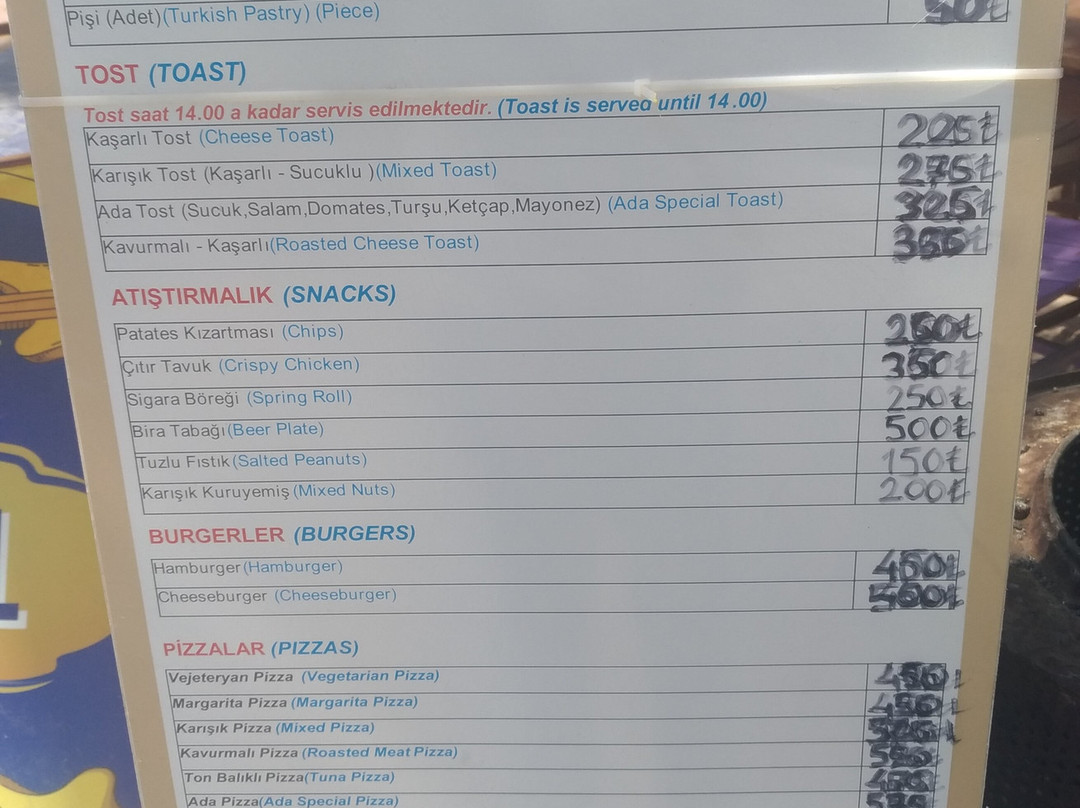 Pişi (Adet)(Turkish Pastry) (Piece)
TOST (TOAST)
Tost saat 14.00 a kadar servis edilmektedir. (Toast is served until 14.00)
Kaşarlı Tost (Cheese Toast) 225₺
Karışık Tost (Kaşarlı - Sucuklu )(Mixed Toast) 275₺
Ada Tost (Sucuk,Salam,Domates,Turşu,Ketçap,Mayonez) (Ada Special Toast) 325₺
Kavurmalı - Kaşarlı(Roasted Cheese Toast)
ATIŞTIRMALIK (SNACKS)
Patates Kızartması (Chips) 250₺
Çıtır Tavuk (Crispy Chicken) 350₺
Sigara Böreği (Spring Roll) 250₺
Bira Tabağı(Beer Plate) 500₺
Tuzlu Fıstık(Salted Peanuts) 150₺
Karışık Kuruyemiş(Mixed Nuts) 200₺
BURGERLER (BURGERS)
Hamburger(Hamburger) 450₺
Cheeseburger (Cheeseburger) 500₺
PİZZALAR (PIZZAS)
Vejeteryan Pizza (Vegetarian Pizza)
Margarita Pizza(Margarita Pizza)
Karışık Pizza(Mixed Pizza)
Kavurmalı Pizza(Roasted Meat Pizza)
Ton Balıklı Pizza(Tuna Pizza)
Ada Pizza(Ada Special Pizza)